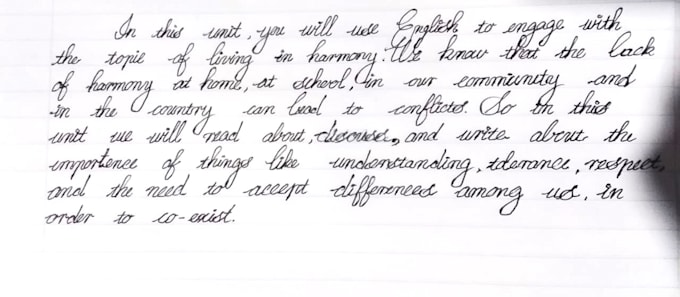 In this unit, you will use English to engage with
the topic of living in harmony. We know that the lack
of harmony at home, at school, in our community and
in the country can lead to conflicts. So in this
unit we will read about, discuss, and write about the
importence of things like understanding, tolerance, respect,
and the need to accept differences among us, in
order to co-exist.